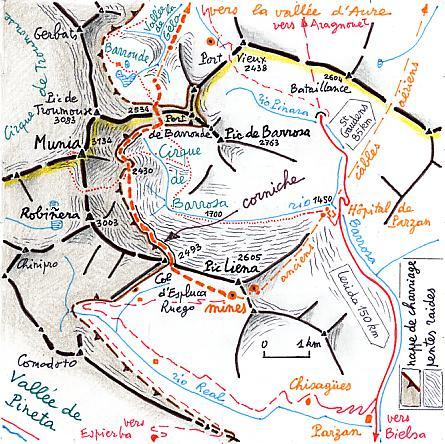 vers la vallée d'Aure
vers Aragnouet
Vallée
de la
Gela
Gerbat
Barroude
Cirque de Tr
Port Vieux
2438
2604
Batallance
Pic de
Troumouse
3083
2534
Port
de Barroude
rio Pinara
St
Gaudens
85 km
câbles aériens
Munia
3134
Pic de Barrosa
2763
2430
Cirque
de
Barrosa
corniche
1700
rio
1450
Hôpital de
Parzan
Barrosa
Robiñera
3003
2493
2605
Pic Liena
anciens
Chinipro
Col
d'Espluca
Ruego
mines
lerida 150 km
nappe de charriage
pentes raides
0 1 km
Comodoto
rio Real
Chisagües
Vallée de
Pineta
vers
Espierba
Parzan
vers
Bielsa